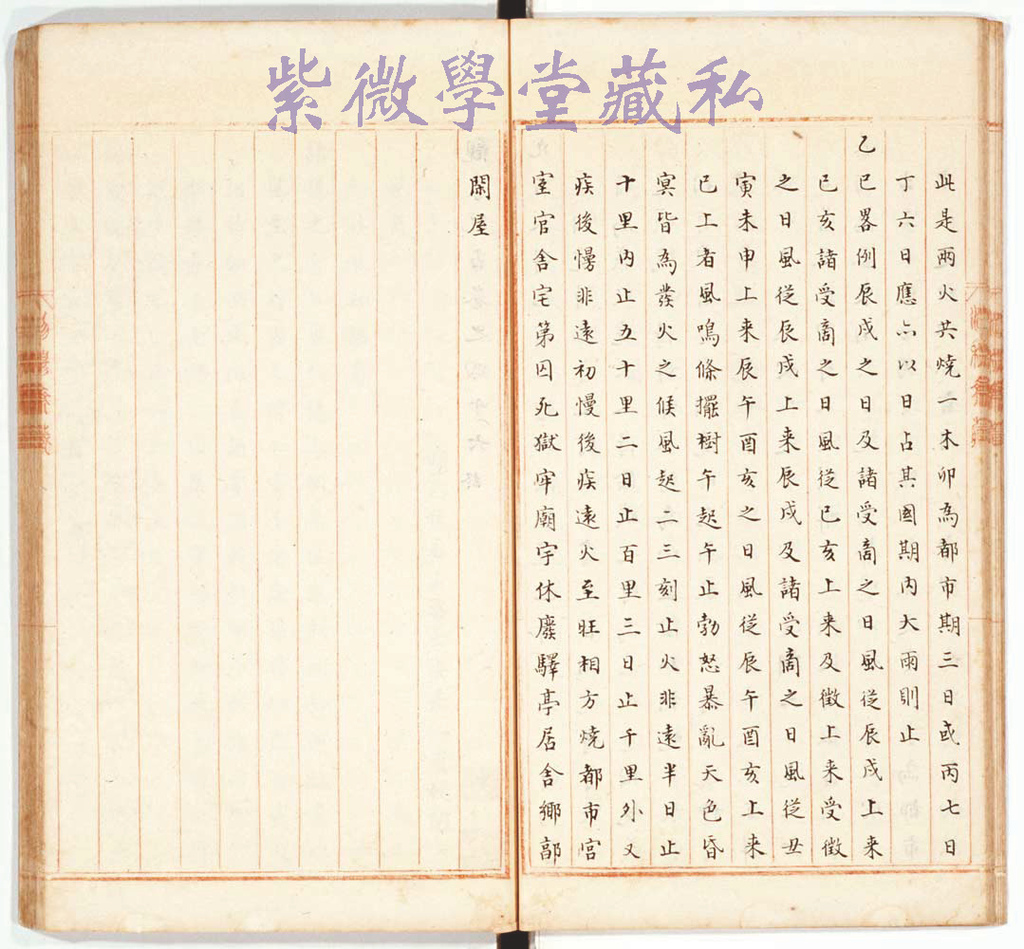 紫微學堂藏私
此是兩火共燒一木卯為都市期三日或丙七日
丁六日應亦以日占其國期内大雨則止
乙巳畧例辰戌之日及諸受商之日風從辰戌上来
巳亥諸受商之日風從巳亥上来及徵上来受徵
之日風從辰戌上来辰戌及諸受商之日風從丑
寅未申上来辰午酉亥之日風從辰午酉亥上来
已上者風鳴條擺樹午起午止勃怒暴亂天色昏
冥皆為發火之候風起二三刻止火非遠半日止
十里内止五十里二日止百里三日止千里外又
疾後慢非遠初慢後疾遠火至旺相方燒都市宫
室官舍宅第囚死獄牢廟宇休廢驛亭居舍鄉郭
閑屋